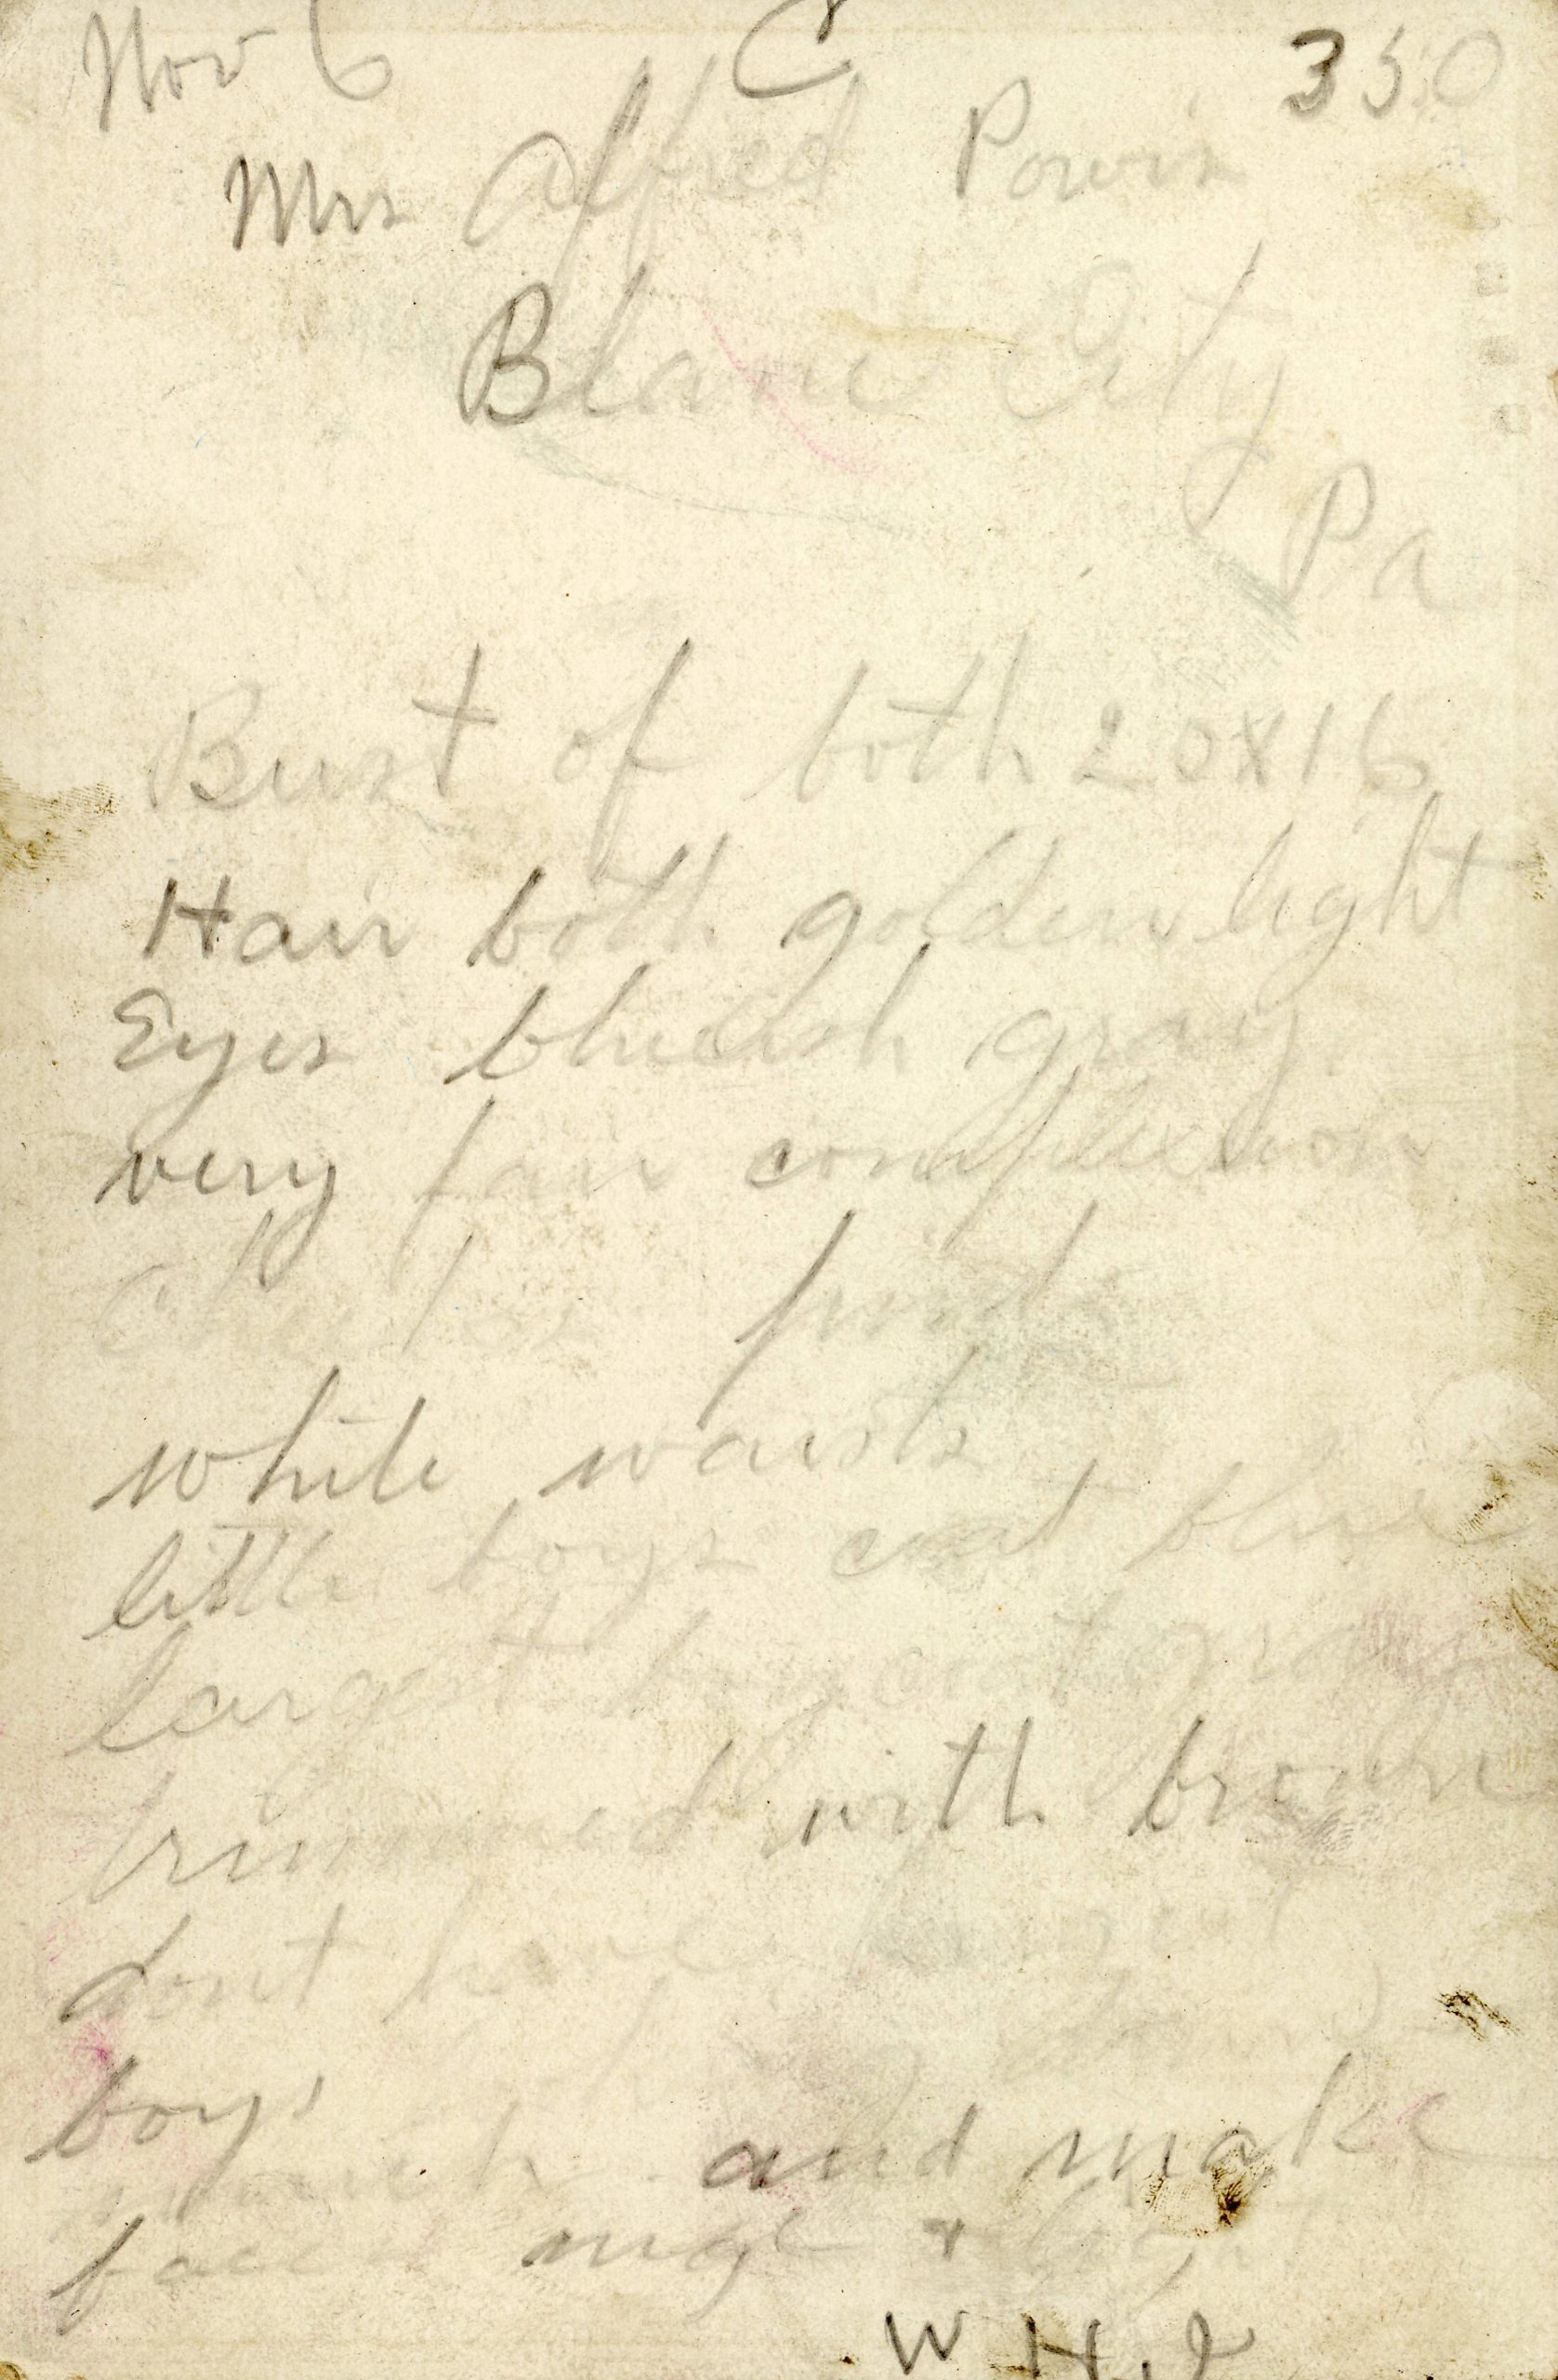 Nov 6 C 350
Mrs Alfred Powis
City
Pa
Bust of both 20X16
Hair both golden light
Eyes blueish gray
very fair complexion
Cheeks pink
white waists
little boys coat blue
largest boy coat gray
trimmed with brown
dont have
boys
and make
faces nice +
W H.